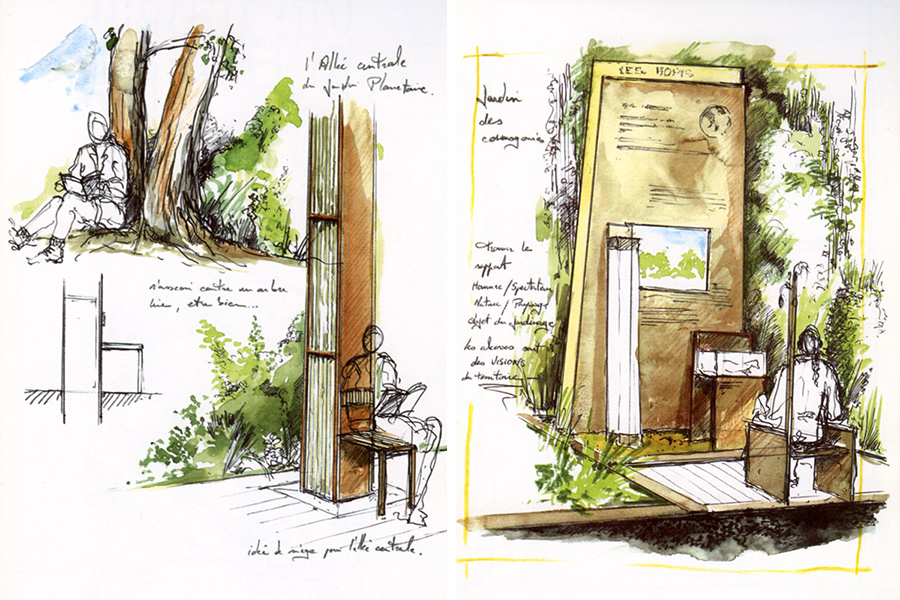 l'Allée centrale
du Jardin Planetaire.
s'asseoir contre un arbre
lire, etre bien...
idée de siege pour l'allée centrale.
Jardin
des
cosmogonies
LES HOPIS
trouver le
rapport
Homme/Spectateur
Nature/Paysage
objet du Jardinage
les alcoves sont
des VISIONS
du territoire